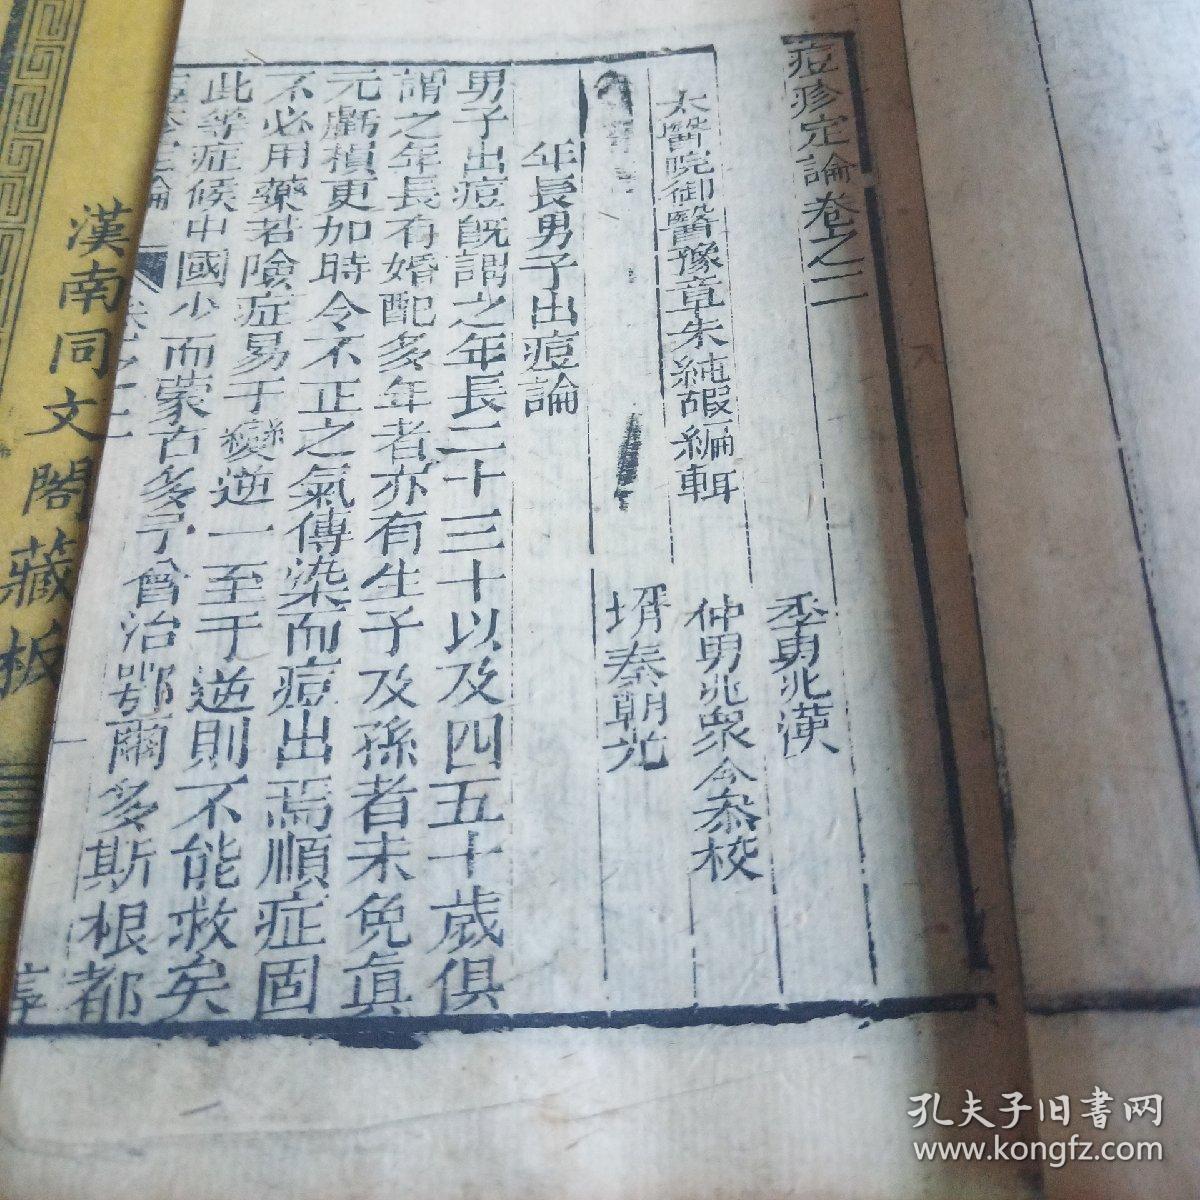 痘疹定論卷之二
太醫院御醫豫章朱純嘏編輯
季男兆漢
仲男兆衆仝叅校
壻秦朝光
年長男子出痘論
男子出痘既謂之年長二十三十以及四五十歲俱
謂之年長有婚配多年者亦有生子及孫者未免眞
元虧損更加時令不正之氣傳染而痘出焉順症固
不必用藥若險症易于變逆一至于逆則不能救矣
此等症候中國少而蒙古多予會治鄂爾多斯根都
漢南同文閣藏板
孔夫子旧书网
www.kongfz.com